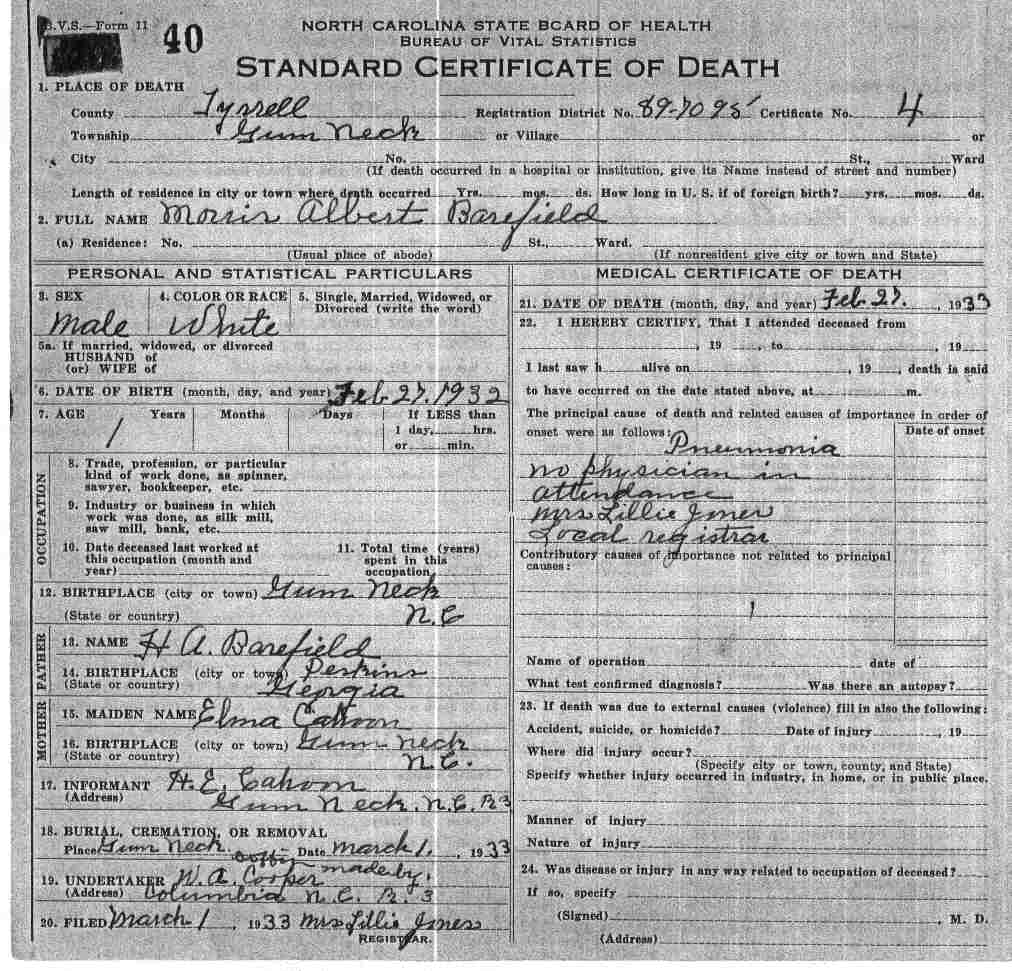 B.V.S.—Form 11
40
NORTH CAROLINA STATE BOARD OF HEALTH
BUREAU OF VITAL STATISTICS
STANDARD CERTIFICATE OF DEATH
1. PLACE OF DEATH
County Tyrrell Registration District No. 89-7095 Certificate No. 4
Township Gum Neck or Village or
City No. St., Ward
(If death occurred in a hospital or institution, give its Name instead of street and number)
Length of residence in city or town where death occurred Yrs. mos. ds. How long in U. S. if of foreign birth? yrs. mos. ds.
2. FULL NAME Morris Albert Barefield
(a) Residence: No. St., Ward.
(Usual place of abode) (If nonresident give city or town and State)
PERSONAL AND STATISTICAL PARTICULARS
3. SEX 4. COLOR OR RACE 5. Single, Married, Widowed, or
Divorced (write the word)
Male White
5a. If married, widowed, or divorced
HUSBAND of
(or) WIFE of
6. DATE OF BIRTH (month, day, and year) Feb 27. 1932
7. AGE Years Months Days If LESS than
1 day, hrs.
or min.
1
OCCUPATION
8. Trade, profession, or particular
kind of work done, as spinner,
sawyer, bookkeeper, etc.
9. Industry or business in which
work was done, as silk mill,
saw mill, bank, etc.
10. Date deceased last worked at
this occupation (month and
year)
11. Total time (years)
spent in this
occupation
12. BIRTHPLACE (city or town) Gum Neck
(State or country) N.C
FATHER
13. NAME H A. Barefield
14. BIRTHPLACE (city or town) Perkins
(State or country) Georgia
MOTHER
15. MAIDEN NAME Elma Cahoon
16. BIRTHPLACE (city or town) Gum Neck
(State or country) N.C.
17. INFORMANT H. E. Cahoon
(Address) Gum Neck. N.C. R 3
18. BURIAL, CREMATION, OR REMOVAL
Place Gum Neck. Date March 1, 1933
coffin made by.
19. UNDERTAKER W. A. Cooper
(Address) Columbia N.C. R. 3
20. FILED March 1 1933 Mrs Lillie Jones
REGISTRAR.
MEDICAL CERTIFICATE OF DEATH
21. DATE OF DEATH (month, day, and year) Feb 27. , 1933
22. I HEREBY CERTIFY, That I attended deceased from
, 19 , to , 19
I last saw h alive on , 19 , death is said
to have occurred on the date stated above, at m.
The principal cause of death and related causes of importance in order of
onset were as follows: Date of onset
Pneumonia
no physician in
attendance
Mrs Lillie Jones
Local registrar
Contributory causes of importance not related to principal
causes:
Name of operation date of
What test confirmed diagnosis? Was there an autopsy?
23. If death was due to external causes (violence) fill in also the following:
Accident, suicide, or homicide? Date of injury , 19
Where did injury occur?
(Specify city or town, county, and State)
Specify whether injury occurred in industry, in home, or in public place.
Manner of injury
Nature of injury
24. Was disease or injury in any way related to occupation of deceased?
If so, specify
(Signed) , M. D.
(Address)